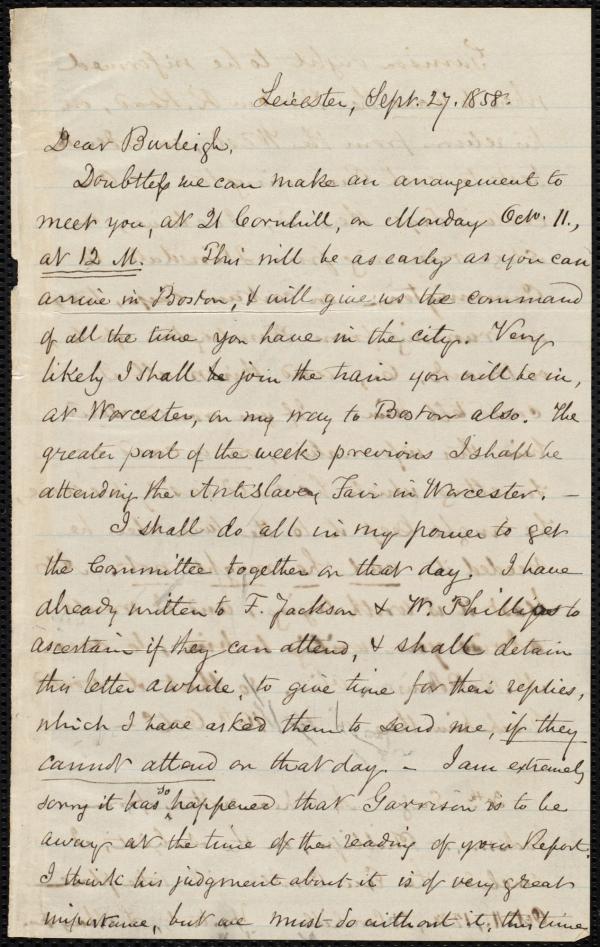 Leicester, Sept. 27. 1858.
Dear Burleigh,
Doubtless we can make an arrangement to
meet you, at 21 Cornhill, on Monday Oct. 11.,
at 12 M. This will be as early as you can
arrive in Boston, & will give us the command
of all the time you have in the city. Very
likely I shall be join the train you will be in,
at Worcester, on my way to Boston also. The
greater part of the week previous I shall be
attending the Antislavery Fair in Worcester. —
I shall do all in my power to get
the Committee together on that day. I have
already written to F. Jackson & W. Phillips to
ascertain if they can attend, & shall detain
this letter awhile, to give time for their replies,
which I have asked them to send me, if they
cannot attend on that day. — I am extremely
sorry it has so happened that Garrison is to be
away at the time of the reading of your Report.
I think his judgment about it is of very great
importance, but we must do without it, this time